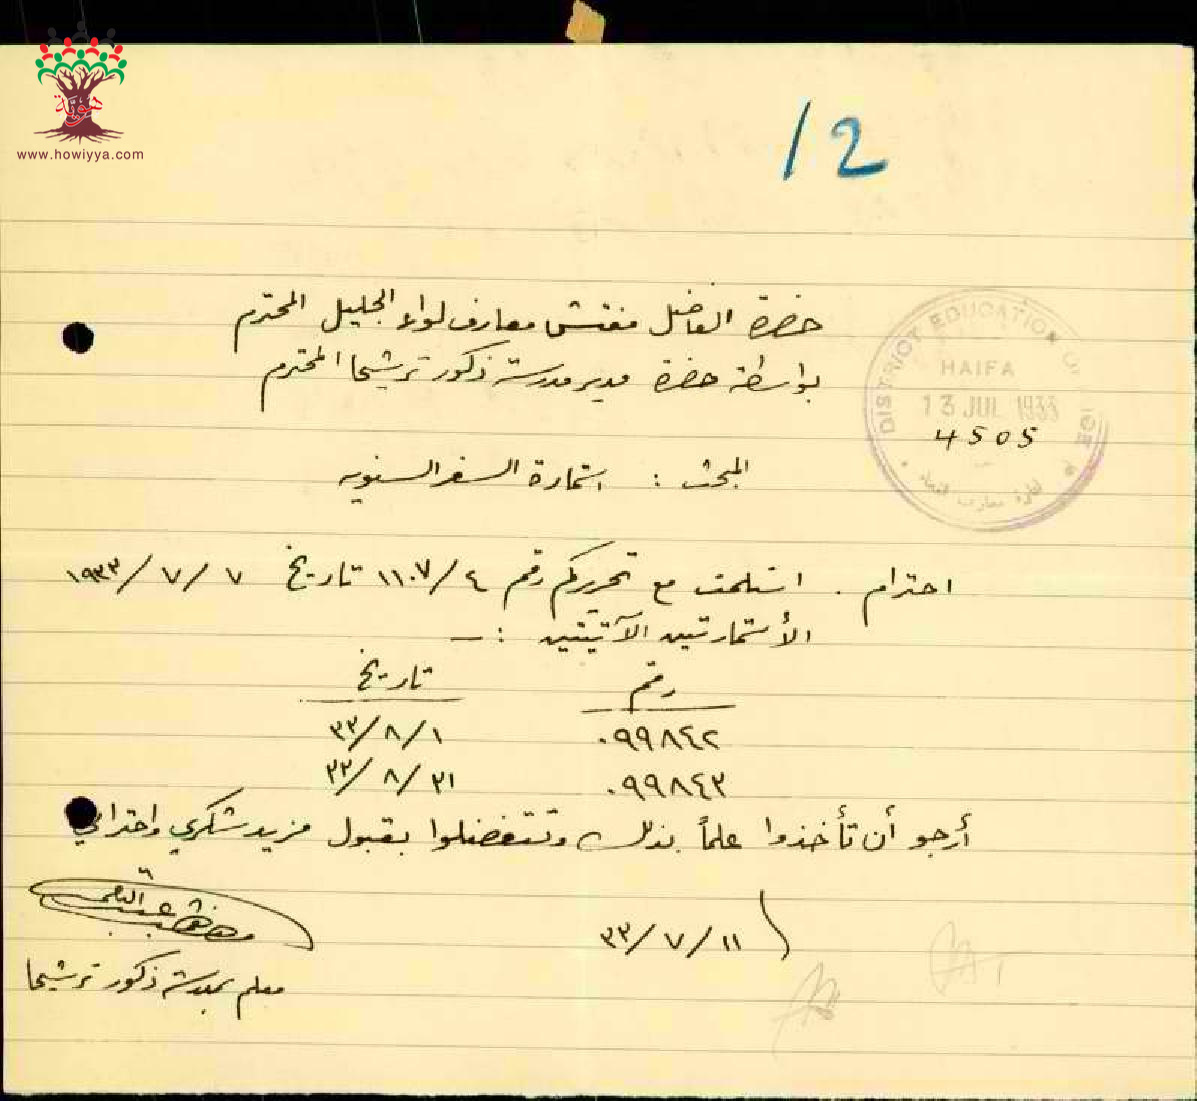 هوية
www.howiyya.com
12
حضرة الفاضل مفتش معارف لواء الجليل المحترم
بواسطة حضرة مدير مدرسة ذكور ترشيحا المحترم
DISTRICT EDUCATION
HAIFA
13 JUL 1933
4505
المبحث : استمارة السفر السنوية
احترام . استلمت مع تحريركم رقم ١١٠٧/٤ تاريخ ١٩٣٣/٧/٧
الأستمارتين الآتيتين :ـ
رقم تاريخ
٠٩٩٨٤٢ ٣٣/٨/١
٠٩٩٨٤٣ ٣٣/٨/٣١
أرجو أن تأخذوا علماً بذلك وتتفضلوا بقبول مزيد شكري واحترامي
٣٣/٧/١١
معلم بمدرسة ذكور ترشيحا